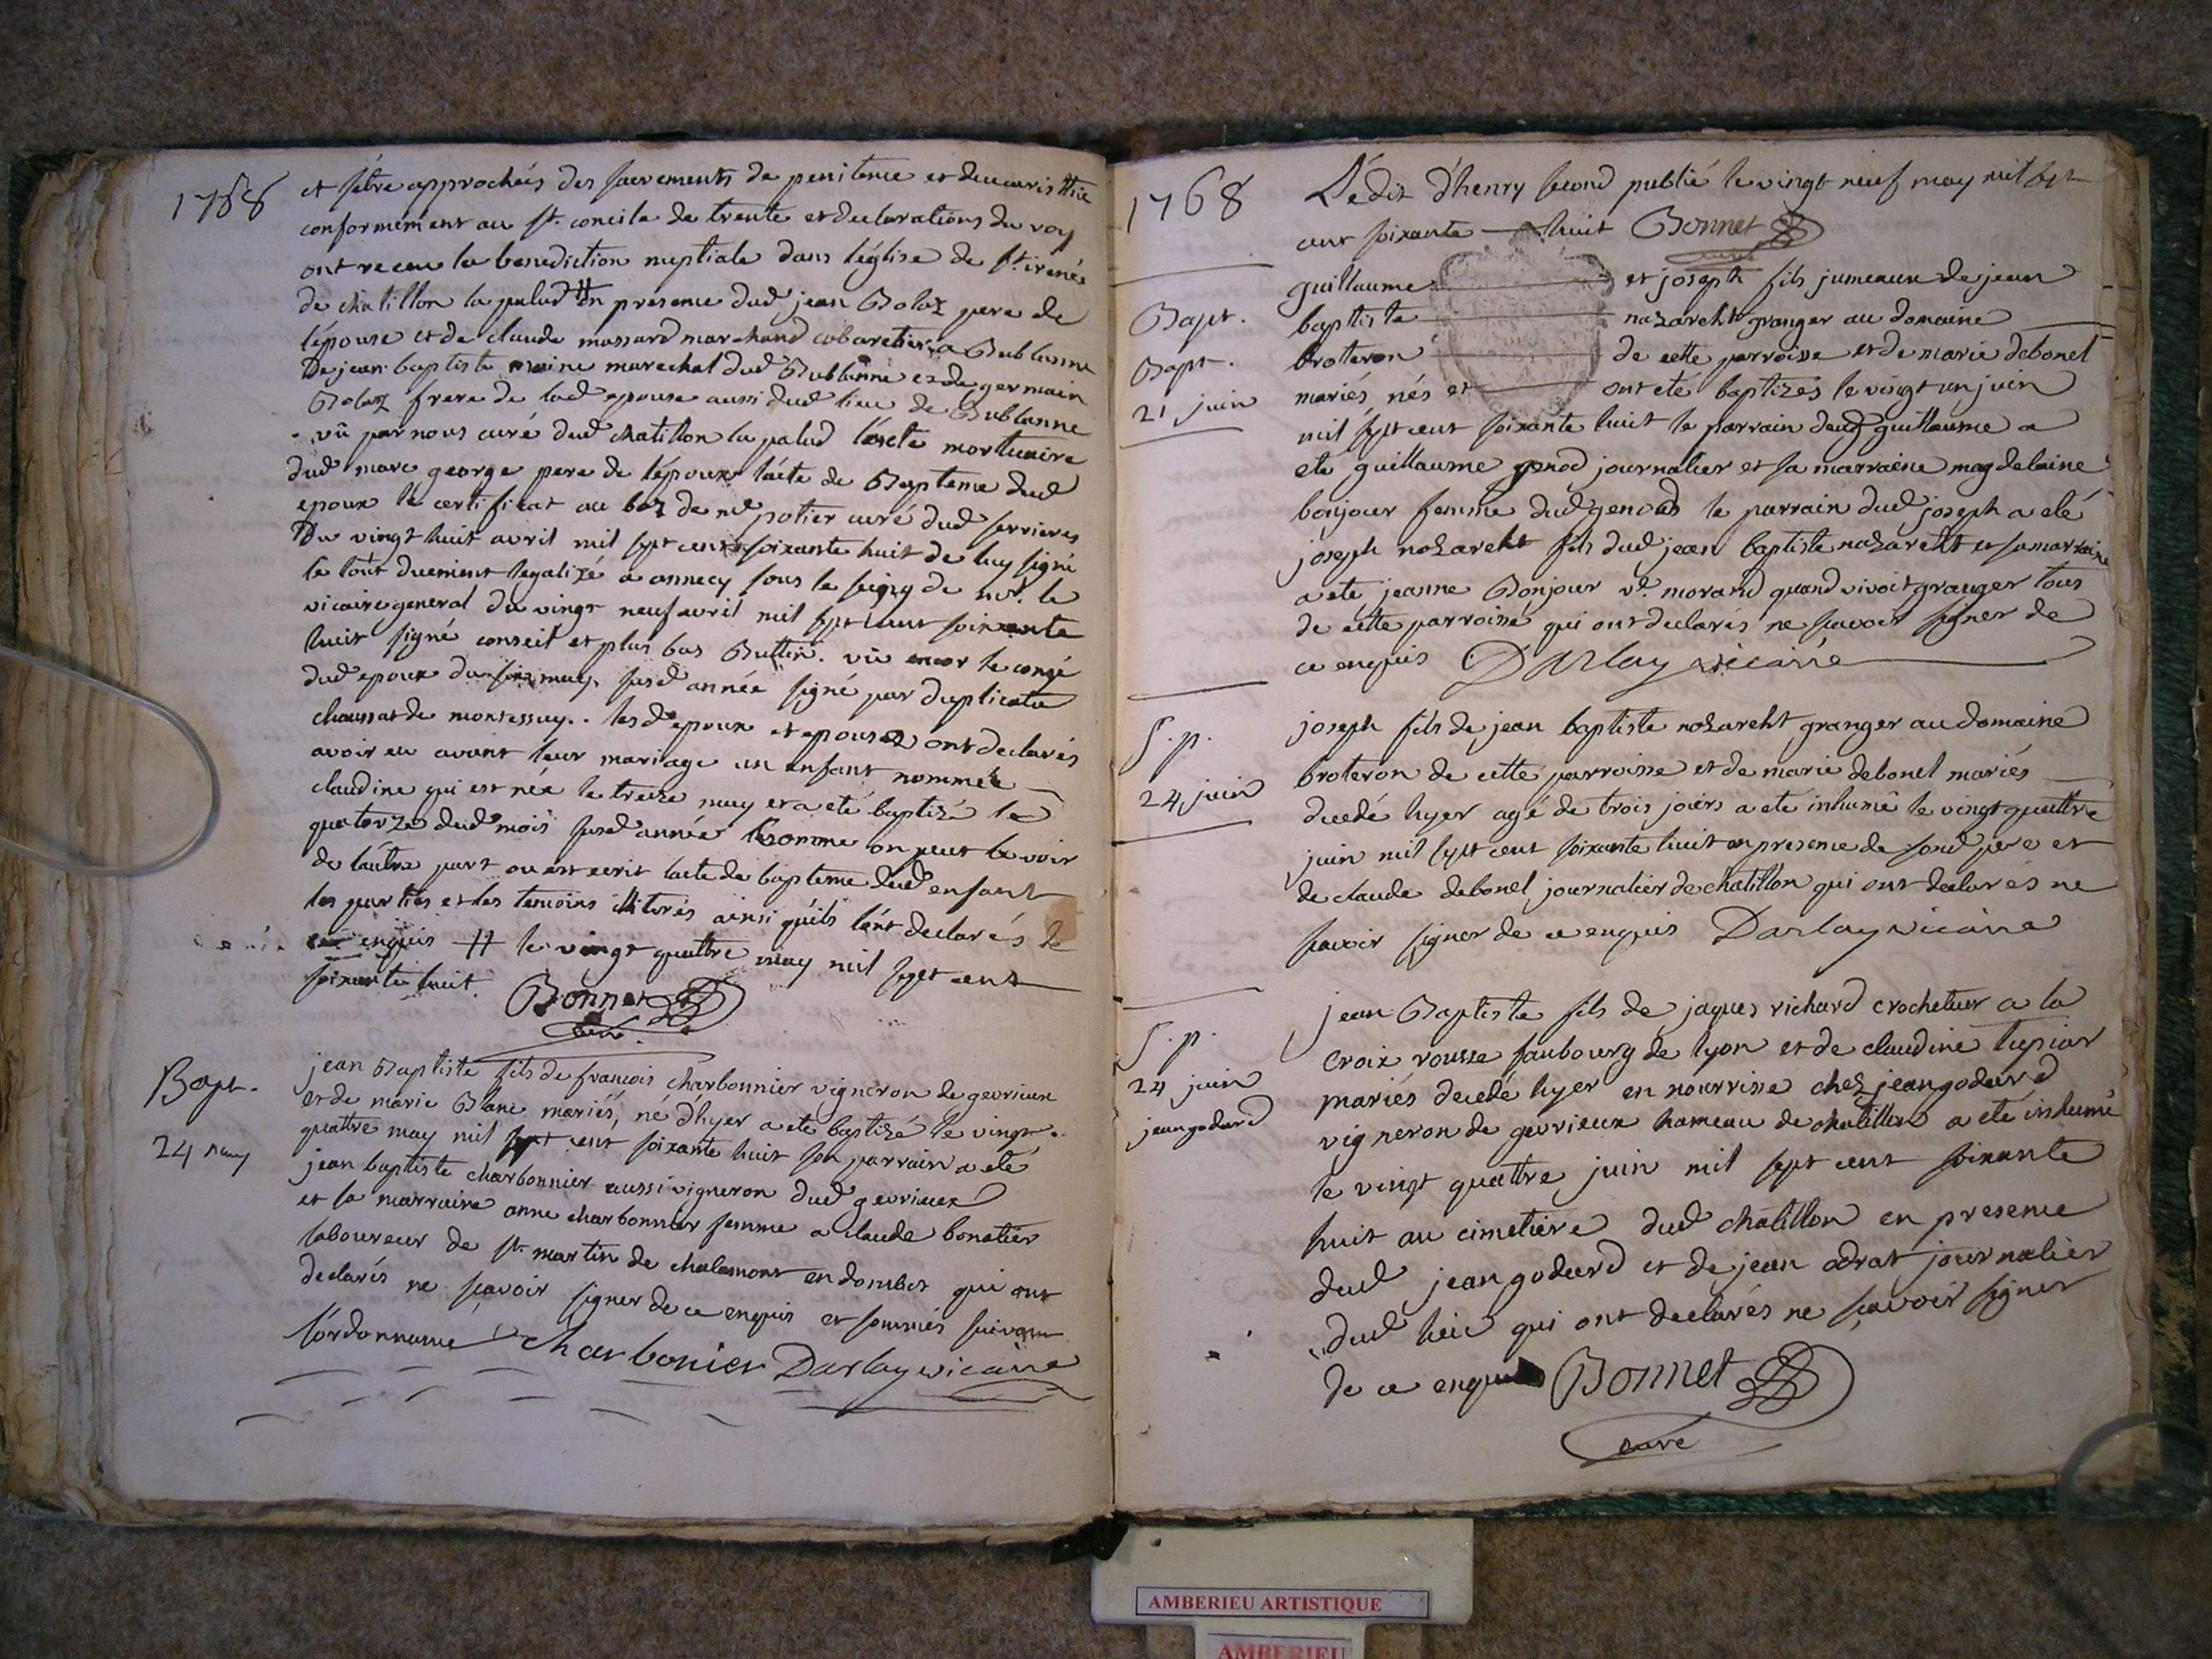 1768
et s'étre approchés des sacrements de penitence et deucaristhie
conformement au st. concile de trente et declarations du roy
ont receu la benediction nuptiale dans l'église de st. irenée
de chatillon la palud # en presence dud jean Boloz pere de
l'épouse et de claude massard marchand cabaretier a Bublanne
De jean baptiste moine marechal dud Bublanne et de germain
Boloz frere de lad epouse aussi dud lieu de Bublanne
vû par nous curé dud chatillon la palud l'acte mortuaire
dud marc george pere de l'époux l'acte de Bapteme dud
epoux le certificat au bas de mr potier curé dud serrieres
Du vingt huit avril mil sept cent soixante huit de luy signé
le tout duement legalizé a annecy sous le seing de mr. le
vicaire general du vingt neuf avril mil sept cent soixante
huit signé conseil et plus bas Buttin. vû encor le congé
dud epoux du six may susd année signé par duplicata
chaussat de montessuy.. lesd epoux et epouse ont declarés
avoir eu avant leur mariage un enfant nommée
claudine qui est née le treize may et a eté baptizé le
quatorze dud mois susd année comme on peut le voir
de l'autre part ou est ecrit l'acte de bapteme dud enfant
les parties et les temoins illiterés ainsi qu'ils l'ont declarés de
ce enquis # le vingt quattre may mil sept cent
soixante huit. Bonnet
curé
Bapt.
24 may
jean Baptiste fils de francois charbonnier vigneron de gevrieux
et de marie Blanc mariés, né d'hyer a eté baptizé le vingt
quattre may mil sept cent soixante huit son parrain a eté
jean baptiste charbonnier aussi vigneron dud gevrieux
et la marraine anne charbonnier femme a claude bonatier
laboureur de st. martin de chalamont en dombes qui ont
declarés ne sçavoir signer de ce enquis et sommés suivant
l'ordonnance charbonier Darlay vicaire
1768
L'édit d'henry second publié le vingt neuf may mil sept
cent soixante huit Bonnet
curé
Bapt.
Bapt.
21 juin
guillaume et joseph fils jumeaux de jean
baptiste nazareht granger au domaine
broteron de cette parroisse et de marie debonel
mariés nés et ont eté baptizés le vingt un juin
mil sept cent soixante huit le parrain dud guillaume a
eté guillaume genod journalier et sa marraine magdelaine
bonjour femme dud genod le parrain dud joseph a eté
joseph nazareht fils dud jean baptiste nazareht et sa marraine
a eté jeanne Bonjour ve. morand quand vivoit granger tous
de cette parroisse qui ont declarés ne sçavoir signer de
ce enquis Darlay vicaire
S. p.
24 juin
joseph fils de jean baptiste nazareht granger au domaine
broteron de cette parroisse et de marie debonel mariés
decedé hyer agé de trois jours a eté inhumé le vingt quattre
juin mil sept cent soixante huit en presence de sond pere et
de claude debonel journalier de chatillon qui ont declarés ne
scavoir signer de ce enquis Darlay vicaire
S. p.
24 juin
jean godard
jean Baptiste fils de jaques richard crocheteur a la
croix rousse faubourg de lyon et de claudine tupiar
mariés decedé hyer en nourrisse chez jean godard
vigneron de gevrieux hameau de chatillon a eté inhumé
le vingt quattre juin mil sept cent soixante
huit au cimetiere dud chatillon en presence
dud jean godard et de jean adrat journalier
dud lieu qui ont declarés ne sçavoir signer
de ce enquis Bonnet
curé
AMBERIEU ARTISTIQUE
AMBERIEU